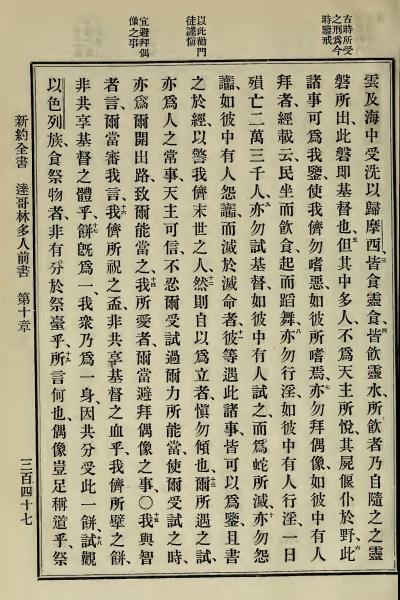 古時所受
之刑為今
時鑒戒
以此勸門
徒謹愼
宜避拜偶
像之事
雲及海中受洗以歸摩西、三皆食靈食、四皆飲靈水、所飲者乃自隨之之靈
磐所出、此磐卽基督也、五但其中多人、不爲天主所悅、其屍偃仆於野、六此
諸事可爲我鑒、使我儕勿嗜惡、如彼所嗜焉、七亦勿拜偶像、如彼中有人
拜者、經載云、民坐而飲食、起而蹈舞、八亦勿行淫、如彼中有人行淫、一日
殞亡二萬三千人、九亦勿試基督、如彼中有人試之、而爲蛇所滅、十亦勿怨
讟、如彼中有人怨讟、而滅於滅命者、十一彼等遇此諸事、皆可以爲鑒、且書
之於經、以警我儕末世之人、十二然則自以爲立者、愼勿傾也、十三爾所遇之試、
亦爲人之常事、天主可信、不忍爾受試過爾力所能當、使爾受試之時、
亦爲爾開出路、致爾能當之、十四我所愛者、爾當避拜偶像之事、〇十五我與智
者言、爾當審我言、十六我儕所祝之盃、非共享基督之血乎、我儕所擘之餅、
非共享基督之體乎、十七餅旣爲一、我衆乃爲一身、因共分受此一餅、十八試觀
以色列族、食祭物者、非有分於祭臺乎、十九所言何也、偶像豈足稱道乎、祭
新約全書　達哥林多人前書　第十章　三百四十七